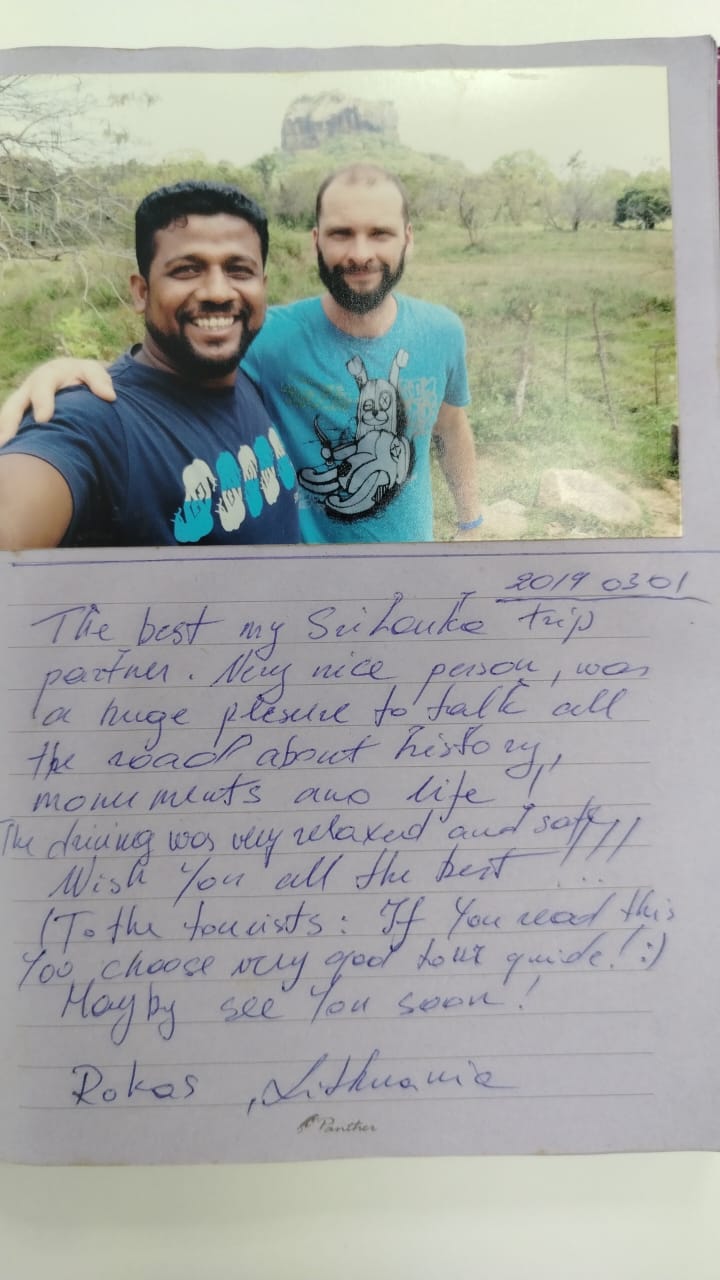 2019 03 01
The best my Sri Lanka trip
partner. Very nice person, was
a huge plesure to talk all
the road about history,
monuments and life!
The driving was very relaxed and safe!!!
Wish You all the best ...
(To the tourists: If You read this
You choose very good tour guide! :)
Mayby see You soon!
Rokas, Lithuania
Panther